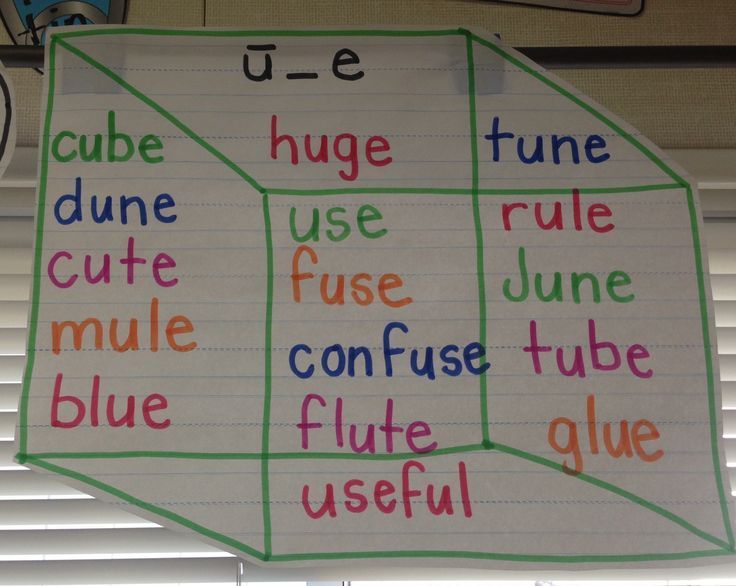 ū_e
cube huge tune
dune use rule
cute fuse June
mule confuse tube
blue flute glue
useful